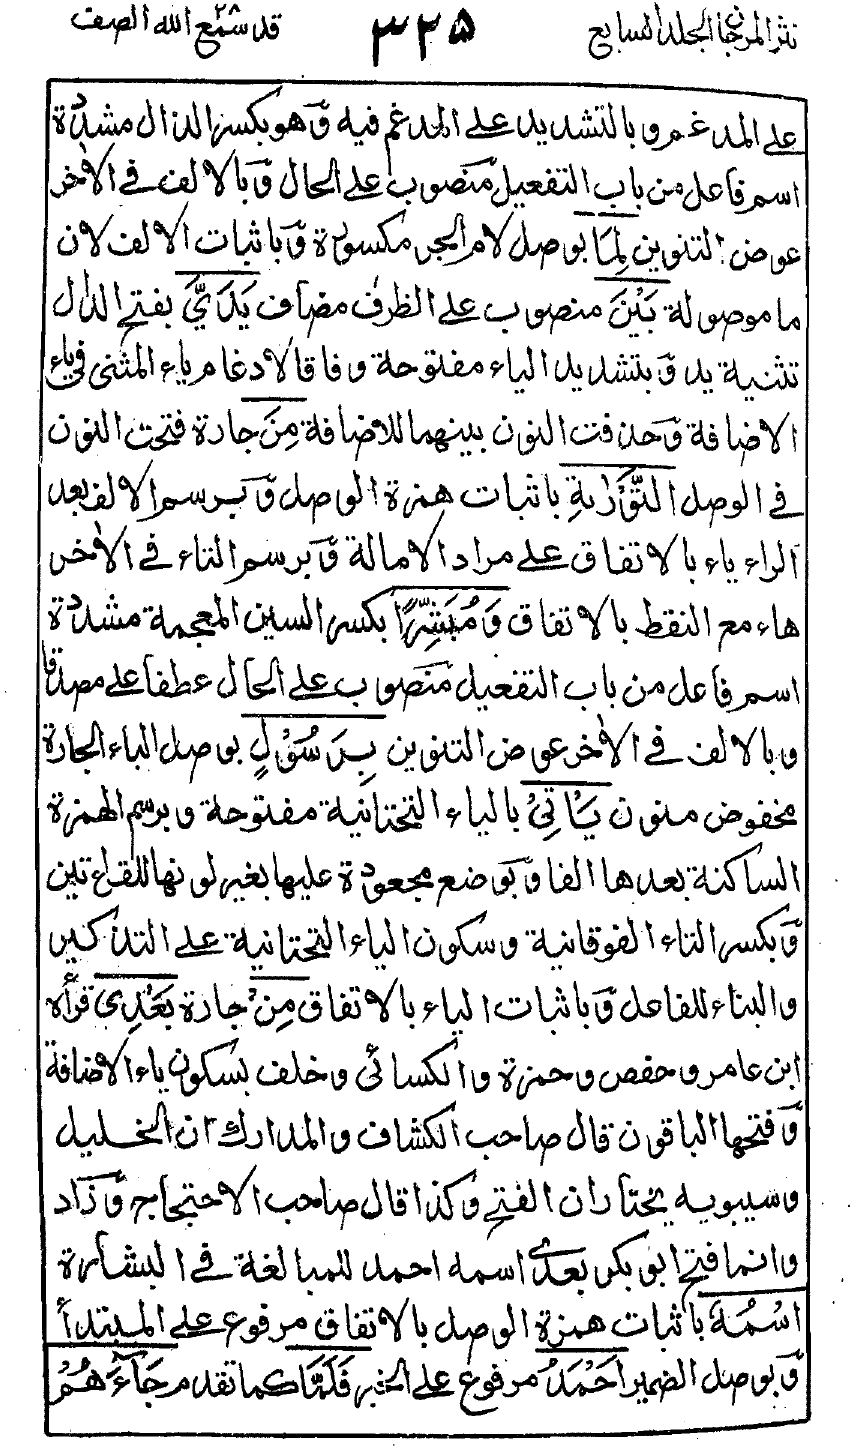 نثر المرجان الجلد السابع ٣٢٥ قد سمع الله ٢٨ الصف
على المدغم و بالتشديد على المدغم فيه و هو بكسر الدال مشددة
اسم فاعل من باب التفعيل منصوب على الحال و بالالف في الاٰخر
عوض التنوين لِمَا بوصل لام الجر مكسورة و باثبات الالف لان
ما موصولة بَيْنَ منصوب على الظرف مضاف يَدَيَّ بفتح الدال
تثنية يد و بتشديد الياء مفتوحة وفاقا لادغام ياء المثنى في ياء
الاضافة و حذفت النون بينهما للاضافة مِنَ جارة فتحت النون
في الوصل التَّوْرٰىةِ باثبات همزة الوصل و برسم الالف بعد
الراء ياء بالاتفاق على مراد الامالة و برسم التاء في الاٰخر
هاء مع النقط بالاتفاق وَمُبَشِّرًا بكسر الشين المعجمة مشددة
اسم فاعل من باب التفعيل منصوب على الحال عطفا على مصدقا
و بالالف في الاٰخر عوض التنوين بِرَسُوْلٍ بوصل الباء الجارة
مخفوض منون يَاْتِيْ بالياء التحتانية مفتوحة و برسم الهمزة
الساكنة بعدها الفا و بوضع مجعودة عليها بغير لونها للقراءتين
و بكسر التاء الفوقانية و سكون الياء التحتانية على التذكير
و البناء للفاعل و باثبات الياء بالاتفاق مِنْ جارة بَعْدِي قرأه
ابن عامر و حفص و حمزة و الكسائي و خلف بسكون ياء الاضافة
و فتحها الباقون قال صاحب الكشاف و المدارك ان الخليل
و سيبويه يختاران الفتح و كذا قال صاحب الاحتجاج و زاد
و انما فتح ابو بكر بعدي اسمه احمد للمبالغة في البشارة
اسْمُهٗ باثبات همزة الوصل بالاتفاق مرفوع على المبتدأ
و بوصل الضمير اَحْمَدُ مرفوع على الخبر فَلَمَّا كما تقدم جَآءَهُمْ